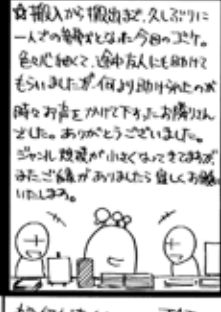 ☆搬入から搬出まで、久しぶりに
一人での参加となった今回のコミケ。
色々心細くて、途中友人にも助けて
もらいましたが、何より助けられたのが
時々お声をかけて下さったお隣りさん
でした。ありがとうございました。
ジャンル規模が小さくなってきてますが
またご縁がありましたら宜しくお願い
いたします。